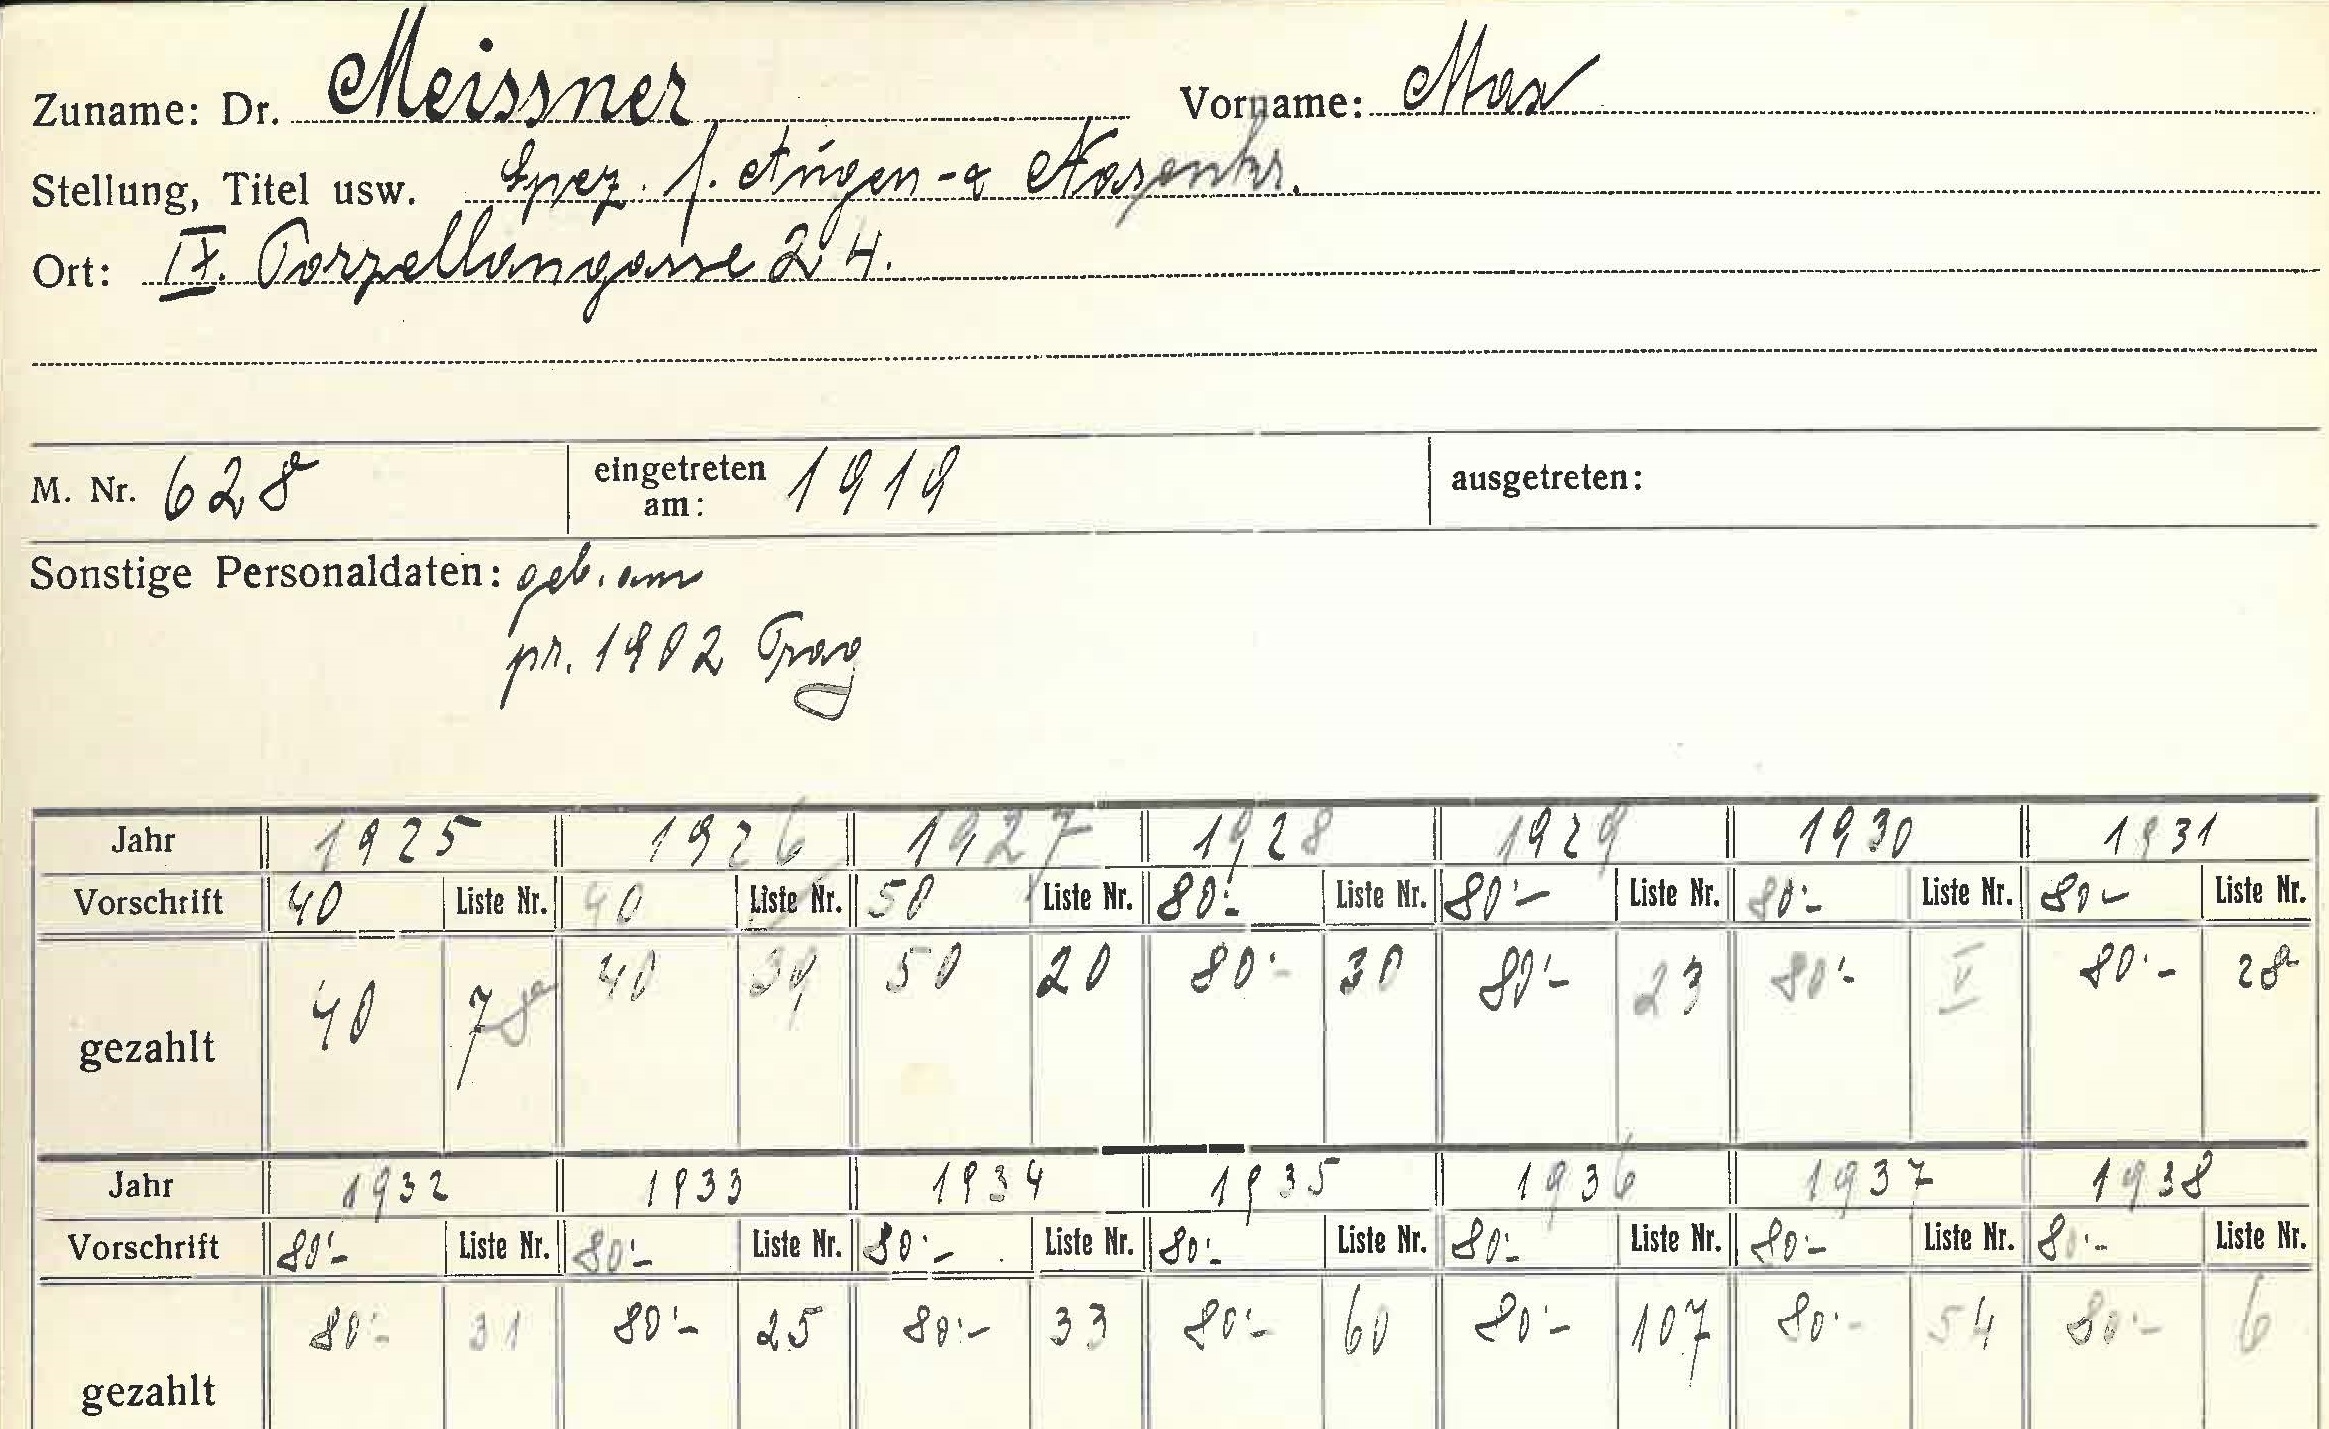 Zuname: Dr. Meissner Vorname: Max
Stellung, Titel usw. Spez. f. Augen- & Nasenkr.
Ort: IX. Porzellangasse 24.
M. Nr. 628 eingetreten am: 1919 ausgetreten:
Sonstige Personaldaten: geb. am
pr. 1902 Prag
Jahr 1925 1926 1927 1928 1929 1930 1931
Vorschrift 40 Liste Nr. 40 Liste Nr. 50 Liste Nr. 80'- Liste Nr. 80'- Liste Nr. 80'- Liste Nr. 80- Liste Nr.
gezahlt 40 78 40 39 50 20 80'- 30 80'- 23 80'- V 80'- 28
Jahr 1932 1933 1934 1935 1936 1937 1938
Vorschrift 80'- Liste Nr. 80'- Liste Nr. 80'- Liste Nr. 80'- Liste Nr. 80'- Liste Nr. 80'- Liste Nr. 80'- Liste Nr.
gezahlt 80'- 31 80'- 25 80'- 33 80'- 60 80'- 107 80'- 54 80'- 6